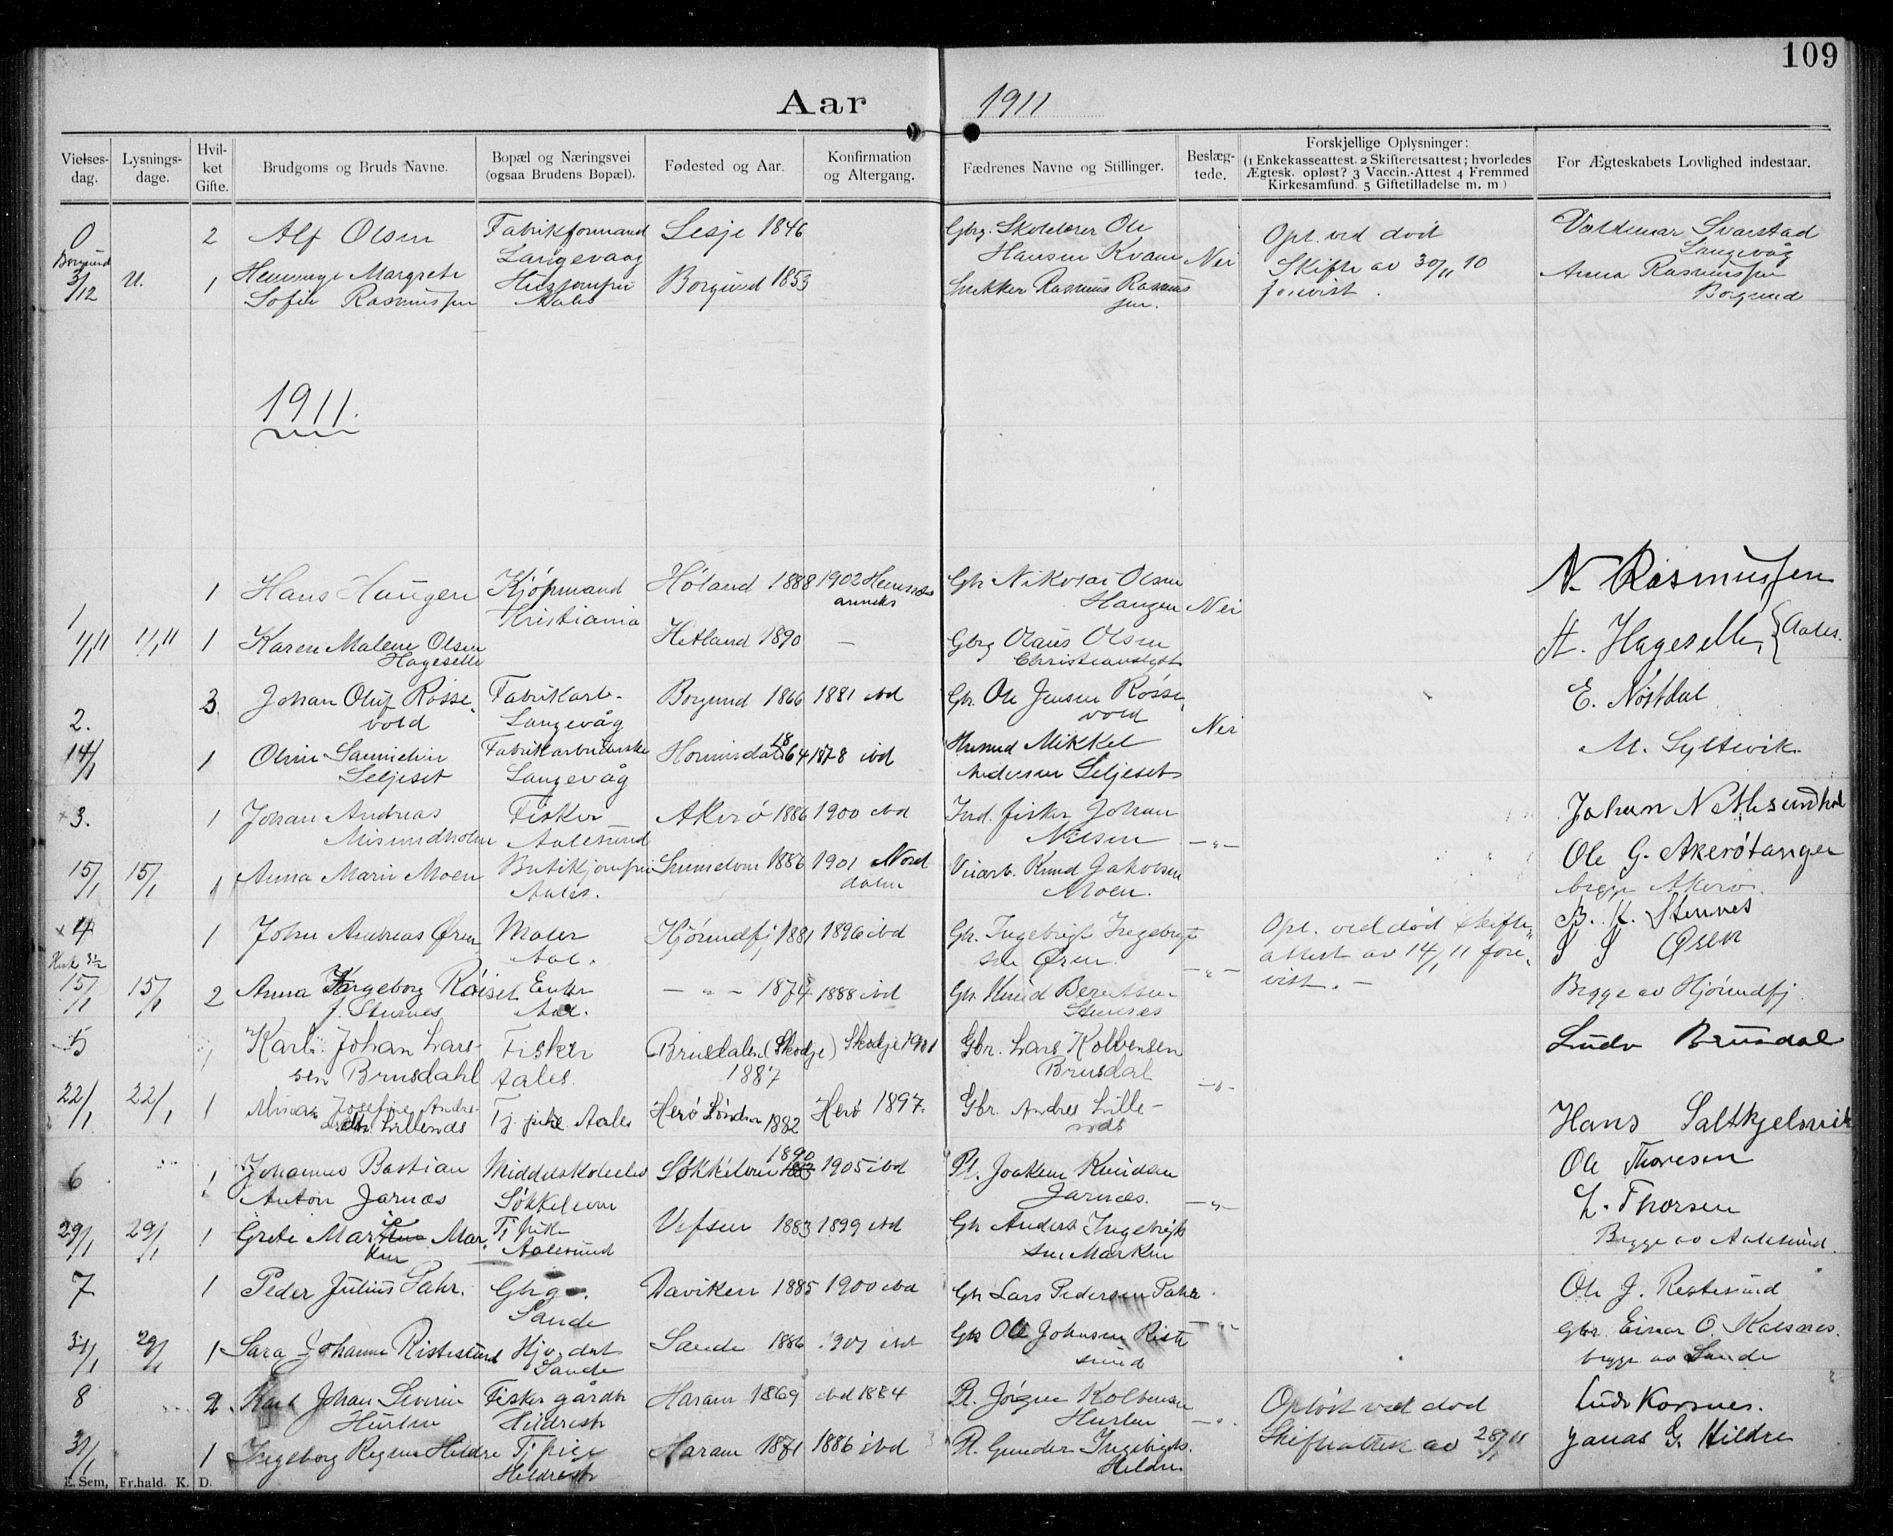 109
Aar 1911
Vielses-dag. Lysnings-dage. Hvil-ket Gifte. Brudgoms og Bruds Navne. Bopæl og Næringsvei (ogsaa Brudens Bopæl). Fødested og Aar. Konfirmation og Altergang. Fædrenes Navne og Stillinger. Beslæg-tede. Forskjellige Oplysninger: (1 Enkekasseattest. 2 Skifteretsattest; hvorledes Ægtesk. opløst? 3 Vaccin.-Attest 4 Fremmed Kirkesamfund. 5 Giftetilladelse m. m) For Ægteskabets Lovlighed indestaar.
0 2 Alf Olsen Fabrikformand Langevaag Lesje 1846 Gbrg. Skolelærer Ole Hansen Kvam Nei Opl. ved død Skifte av 30/11 10 forevist. Valdemar Svarstad Langevåg
Borgund 3/12 U. 1 Margrete Sofie Rasmussen Husjomfru Aales Borgund 1853 Snekker Rasmus Rasmussen. Anna Rasmussen Borgund
1911.
1 1 Hans Haugen Kjøpmand Kristiania Høland 1888 1902 Hemnes anneks Gbr Nikolai Olsen Haugen Nei N. Rasmussen
1/1 11 1/1 11 1 Karen Malene Olsen Hageselle Hetland 1890 — Gbrg Olaus Olsen Christianslyst A. Hageselle, Aales.
2. 3 Johan Oluf Røssevold Fabrikarb. Langevåg Borgund 1866 1881 ibd Gbr. Ole Jensen Røssevold Nei E. Nøstdal
14/1 1 Oline Seljeset Fabrikarbeiderske Langevåg Hornindal 1864 1878 ibd Husmd Mikkel Andersen Seljeset M. Syltevik
3. 1 Johan Andreas Misundholm Fisker Aalesund Akerø 1886 1900 ibd Ind. fisker Johan Nilsen —„— Johan
15/1 15/1 1 Anna Marie Moen Butikjomfru Aales. Sunnelven 1886 1901 Norddalen Knud Jakobsen Moen. Ole G. Akerøtangen begge Akerø.
4 1 John Andreas Øren Maler Aal. Hjørundfj 1881 1896 ibd Gbr. Ingebrigt Ingebrigtsen Øren. —„— Opl. ved død skifteattest av 14/1 11 forevist. — B. K. Stennes
15/1 15/1 2 Anna Ingeborg Røiset f. Stennes Enke Aal. — „ — 1874 1888 ibd Gbr Knud Berntsen Stennes Øren Begge av Hjørundfj.
5 1 Karl Johan Larssen Brusdahl Fisker Aales. Brusdalen (Skodje) 1887 Skodje 1901 Gbr. Lars Kolbensen Brusdal —„— Ludv Brusdal
22/1 22/1 1 Josefine Tj. pike Aales Herø Søndm 1882 Herø 1897. Gbr. Andres Hans Saltkjelsvik
6 1 Johannes Bastian Anton Jarnæs Søkkelven Søkkelven 1890 1905 ibd Pl. Joakim Knudsen Jarnæs. —„— Ole Thoresen
29/1 29/1 1 Grete Marken Tj pike Aalesund Vefsen 1883 1899 ibd Gbr Anders Ingebrigtsen Marken L. Thorsen Begge av Aalesund.
7 1 Peder Julius Pahr. Gbrg. Sande Daviken 1885 1900 ibd Gbr Lars Pedersen Pahr. —„— Ole J. Restesund
31/1 29/1 1 Sara Johanne Ristesund Sande Sande 1886 1901 ibd Gbr Ole Johnsen Ristesund Gbr. Einar O. begge av Sande
8 2 Karl Johan Severin Hurlen Fisker gårdbr Hildrestr Haram 1869 ibd 1884 Pl. Jørgen Kolbensen Hurlen —„— Opløst ved død Skifteattest av 28/1 11 Ludv Korsnes.
31/1 1 Ingeborg Regine Hildre Tj pige Hildrestr Haram 1871 1886 ibd Pl. Gunder Ingebrigts. Hildre. Jonas G. Hildre
E. Sem, Fr.hald. K. D.